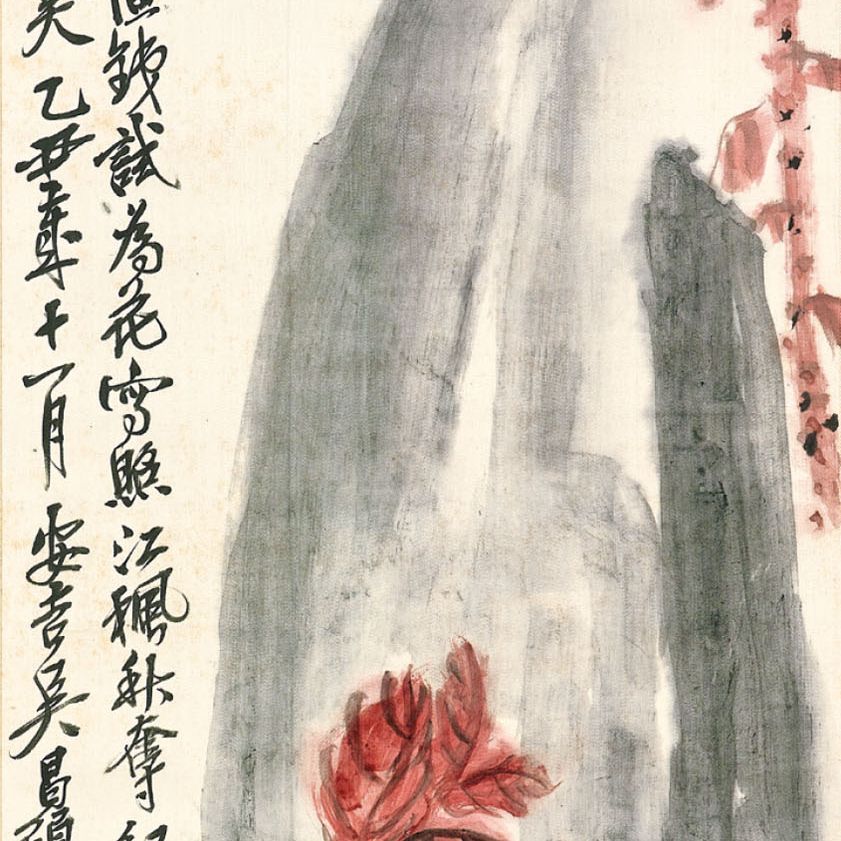 錢試為花寫照江楓秋奪
乙丑年十一月安吉吳昌碩